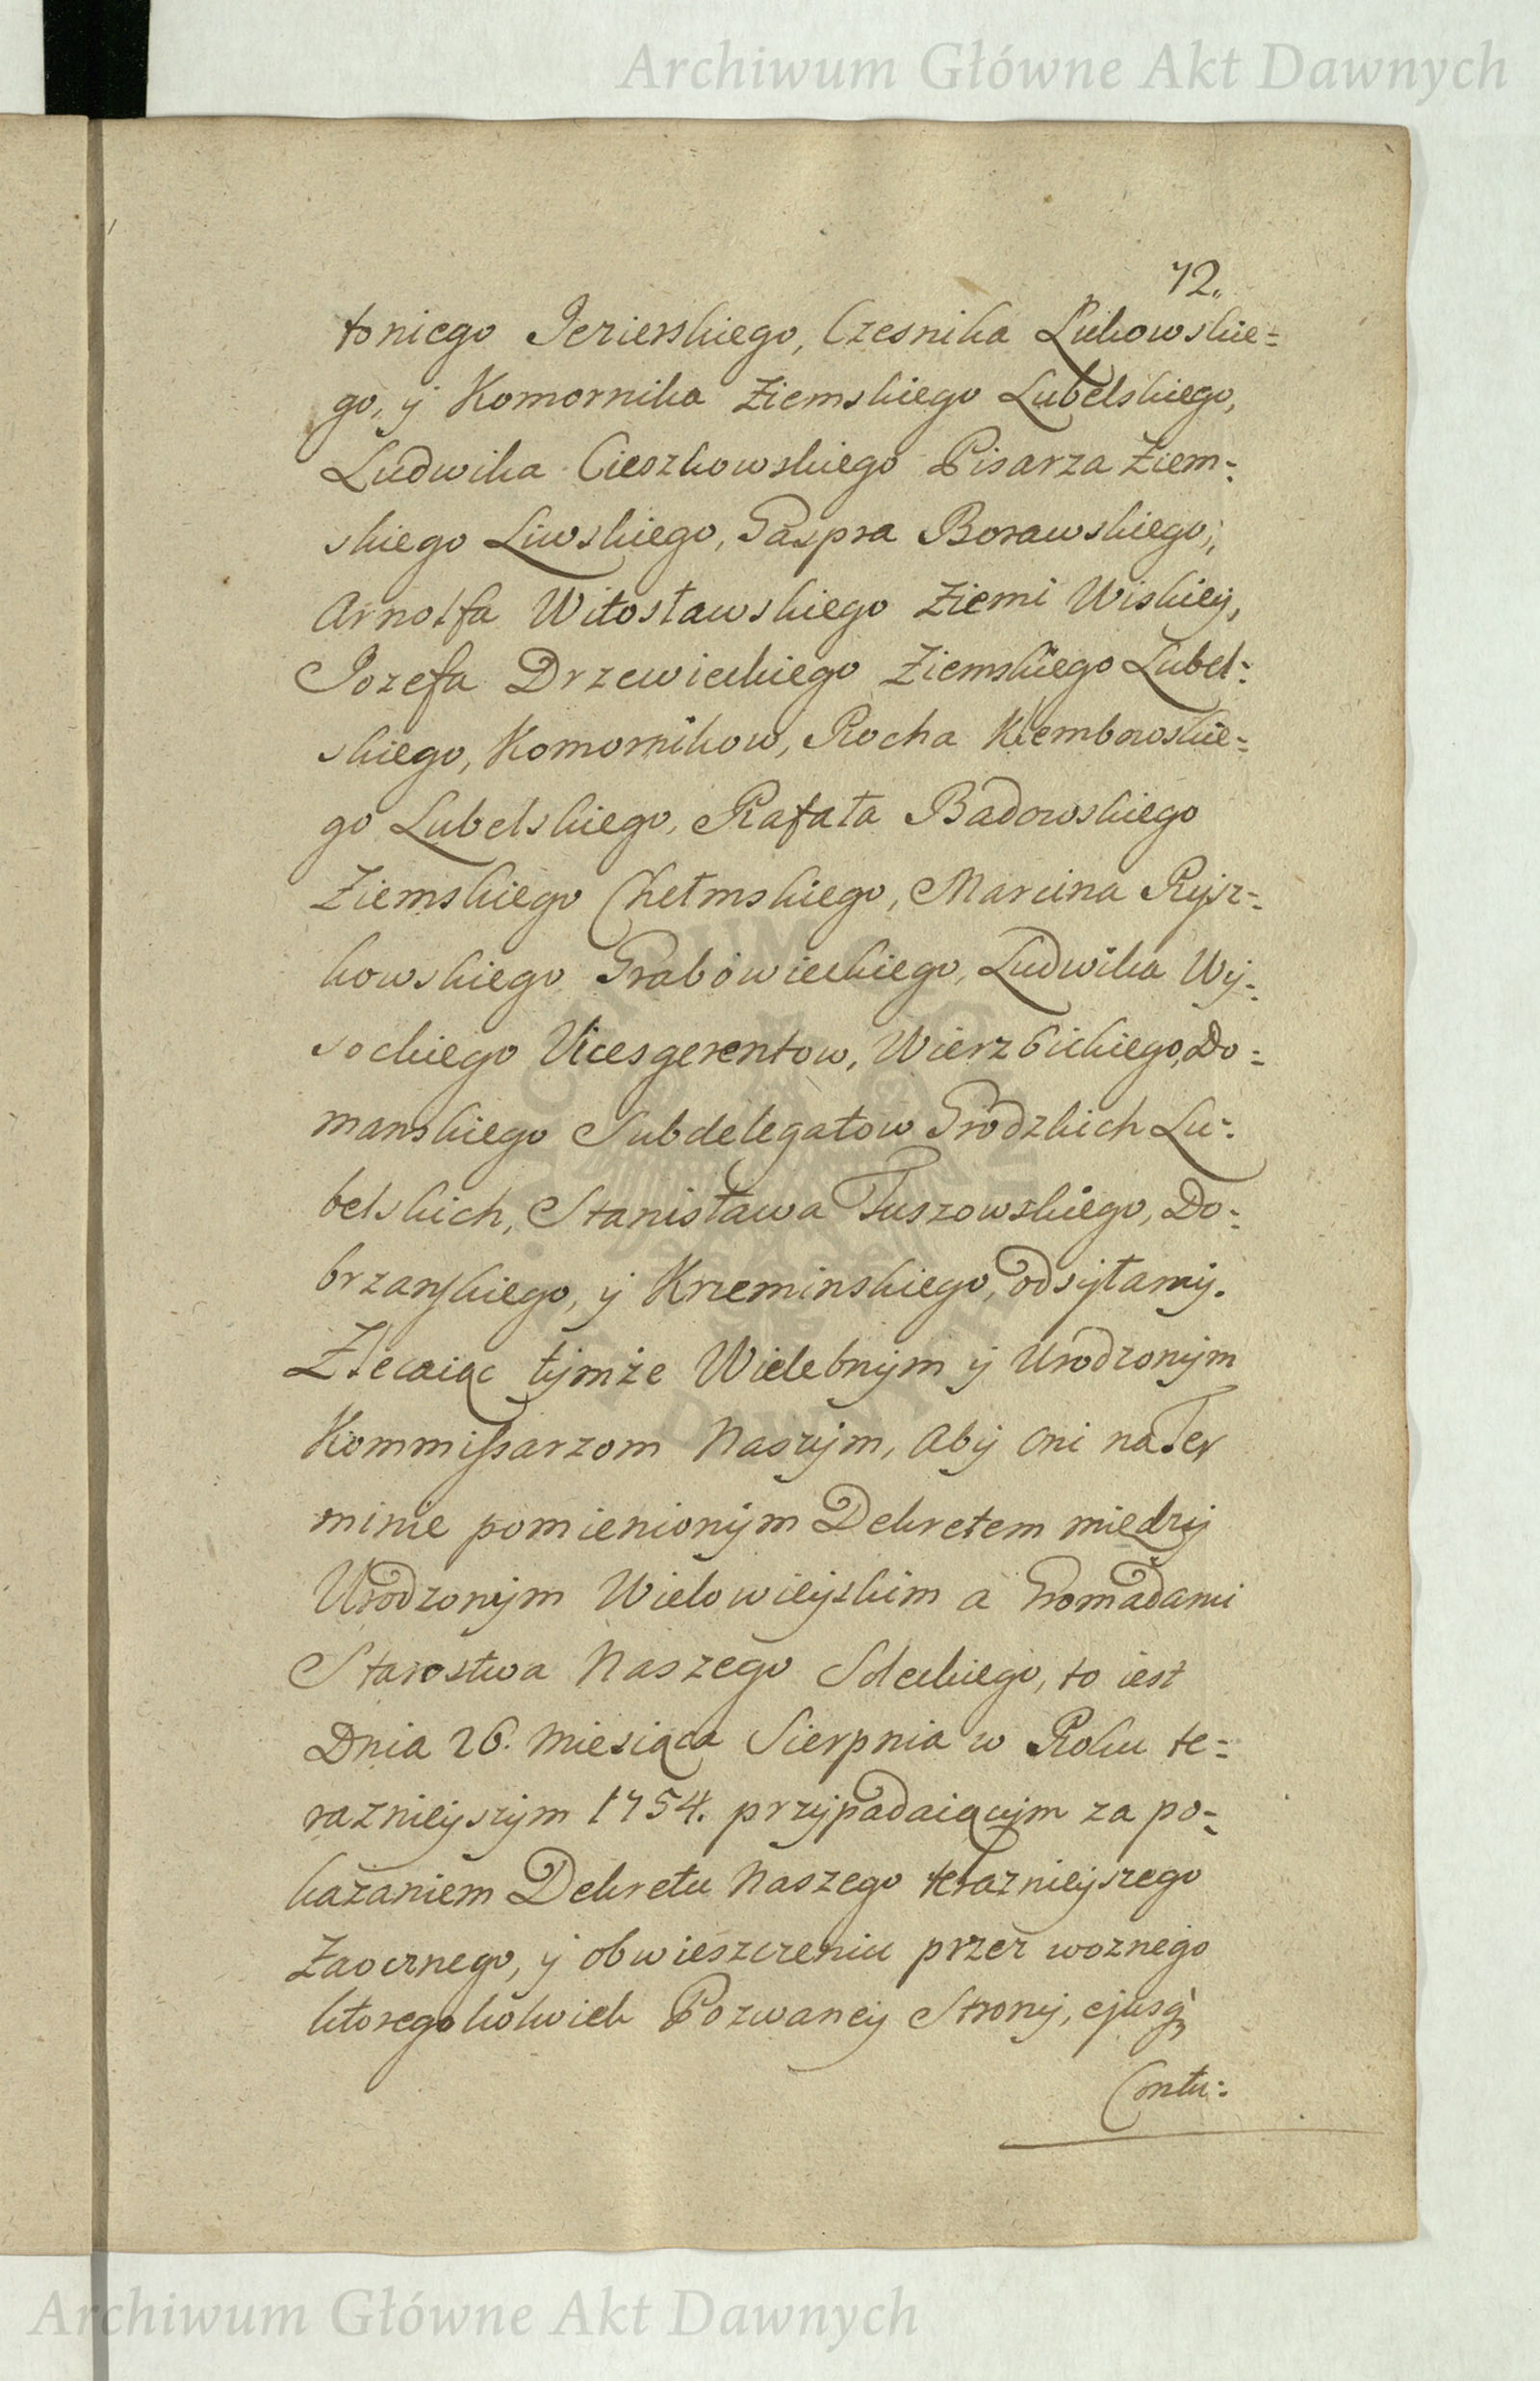 Archiwum Główne Akt Dawnych
72.
toniego Jezierskiego, Czesnika Łukowskie=
go, y Komornika Ziemskiego Lubelskiego,
Ludwika Cieszkowskiego Pisarza Ziem=
skiego Liwskiego, Gaspra Borawskiego,
Arnolfa Witosławskiego Ziemi Wiskiey,
Jozefa Drzewieckiego Ziemskiego Lubel=
skiego, Komornikow, Rocha Klembowskie=
go Lubelskiego, Rafała Badowskiego
Ziemskiego Chełmskiego, Marcina Rysz=
kowskiego Grabowieckiego, Ludwika Wy=
sockiego Vicesgerentow, Wierzbickiego, Do=
manskiego Subdelegatow Grodzkich Lu=
belskich, Stanisława Tuszowskiego, Do=
brzanskiego, y Krzeminskiego, odsyłamy.
Zlecaiąc tymże Wielebnym y Urodzonym
Kommissarzom Naszym, aby oni na Ter
minie pomienionym Dekretem między
Urodzonym Wielowieyskim a Gromadami
Starostwa Naszego Soleckiego, to iest
Dnia 26. Miesiąca Sierpnia w Roku te=
raznieyszym 1754. przypadaiącym za po=
kazaniem Dekretu Naszego teraznieyszego
Zaocznego, y obwieszczeniu przez woznego
ktoregokolwiek Pozwaney Strony, ejusq
Contu:
Archiwum Główne Akt Dawnych